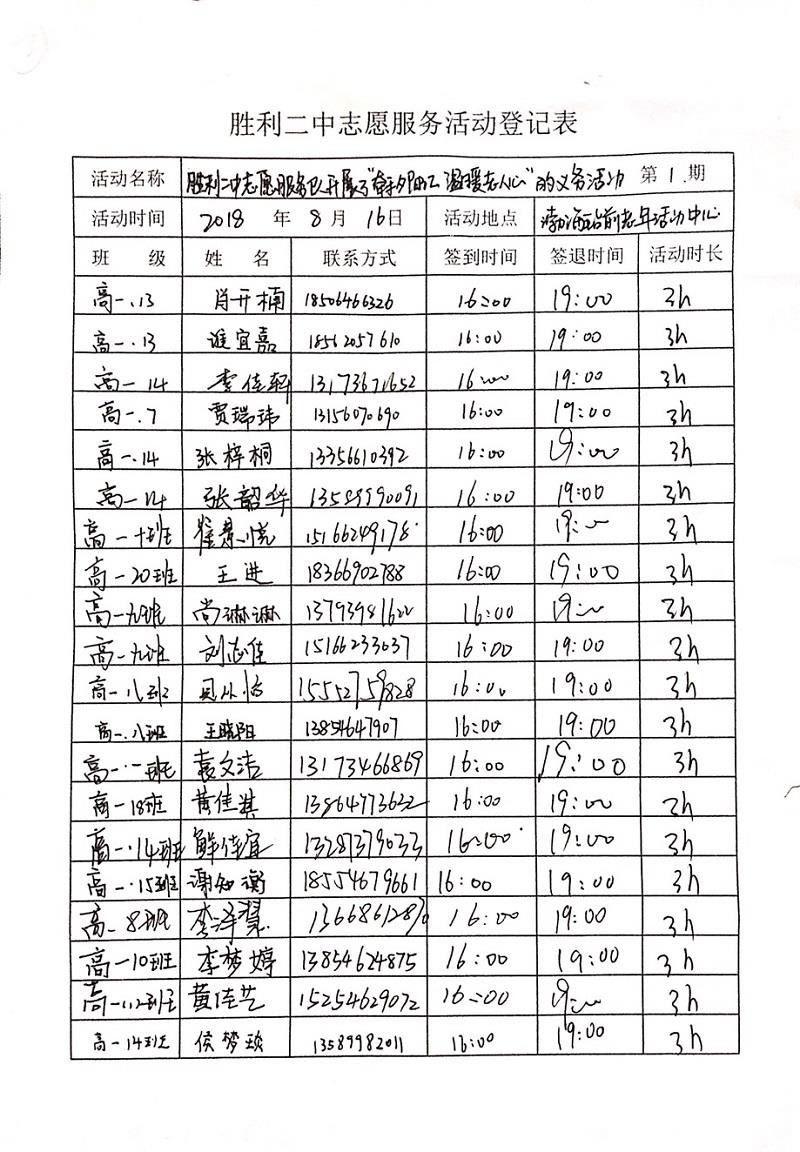 胜利二中志愿服务活动登记表
活动名称 胜利二中志愿服务队开展了"牵手夕阳红 温暖老人心"的义务活动 第1期
活动时间 2018年8月16日 活动地点 渤海站前老年活动中心
班级 姓名 联系方式 签到时间 签退时间 活动时长
高一.13 肖开楠 18506466326 16:00 19:00 3h
高一.13 谯宜嘉 18562057610 16:00 19:00 3h
高一.14 李佳轩 13173671652 16:00 19:00 3h
高一.7 贾瑞玮 13156070690 16:00 19:00 3h
高一.14 张梓桐 13356610392 16:00 19:00 3h
高一14 张韶华 13589990091 16:00 19:00 3h
高一十班 15166249178 16:00 19:00 3h
高一20班 王进 18366902788 16:00 19:00 3h
高一九班 尚琳琳 13793981622 16:00 19:00 3h
高一九班 刘志佳 15166233037 16:00 19:00 3h
高一八班 15552759828 16:00 19:00 3h
高一.八班 王晓阳 13854647907 16:00 19:00 3h
高一.一班 袁文洁 13173466869 16:00 19:00 3h
高一18班 黄佳淇 13864773632 16:00 19:00 3h
高一.14班 鲜佳宜 13287379033 16:00 19:00 3h
高一.15班 谢知衡 18554679661 16:00 19:00 3h
高一8班 李泽慧 16:00 19:00 3h
高一10班 李梦婷 13854624875 16:00 19:00 3h
高一.12班 黄佳艺 15254629072 16:00 19:00 3h
高一14班 侯梦琪 13589982011 16:00 19:00 3h